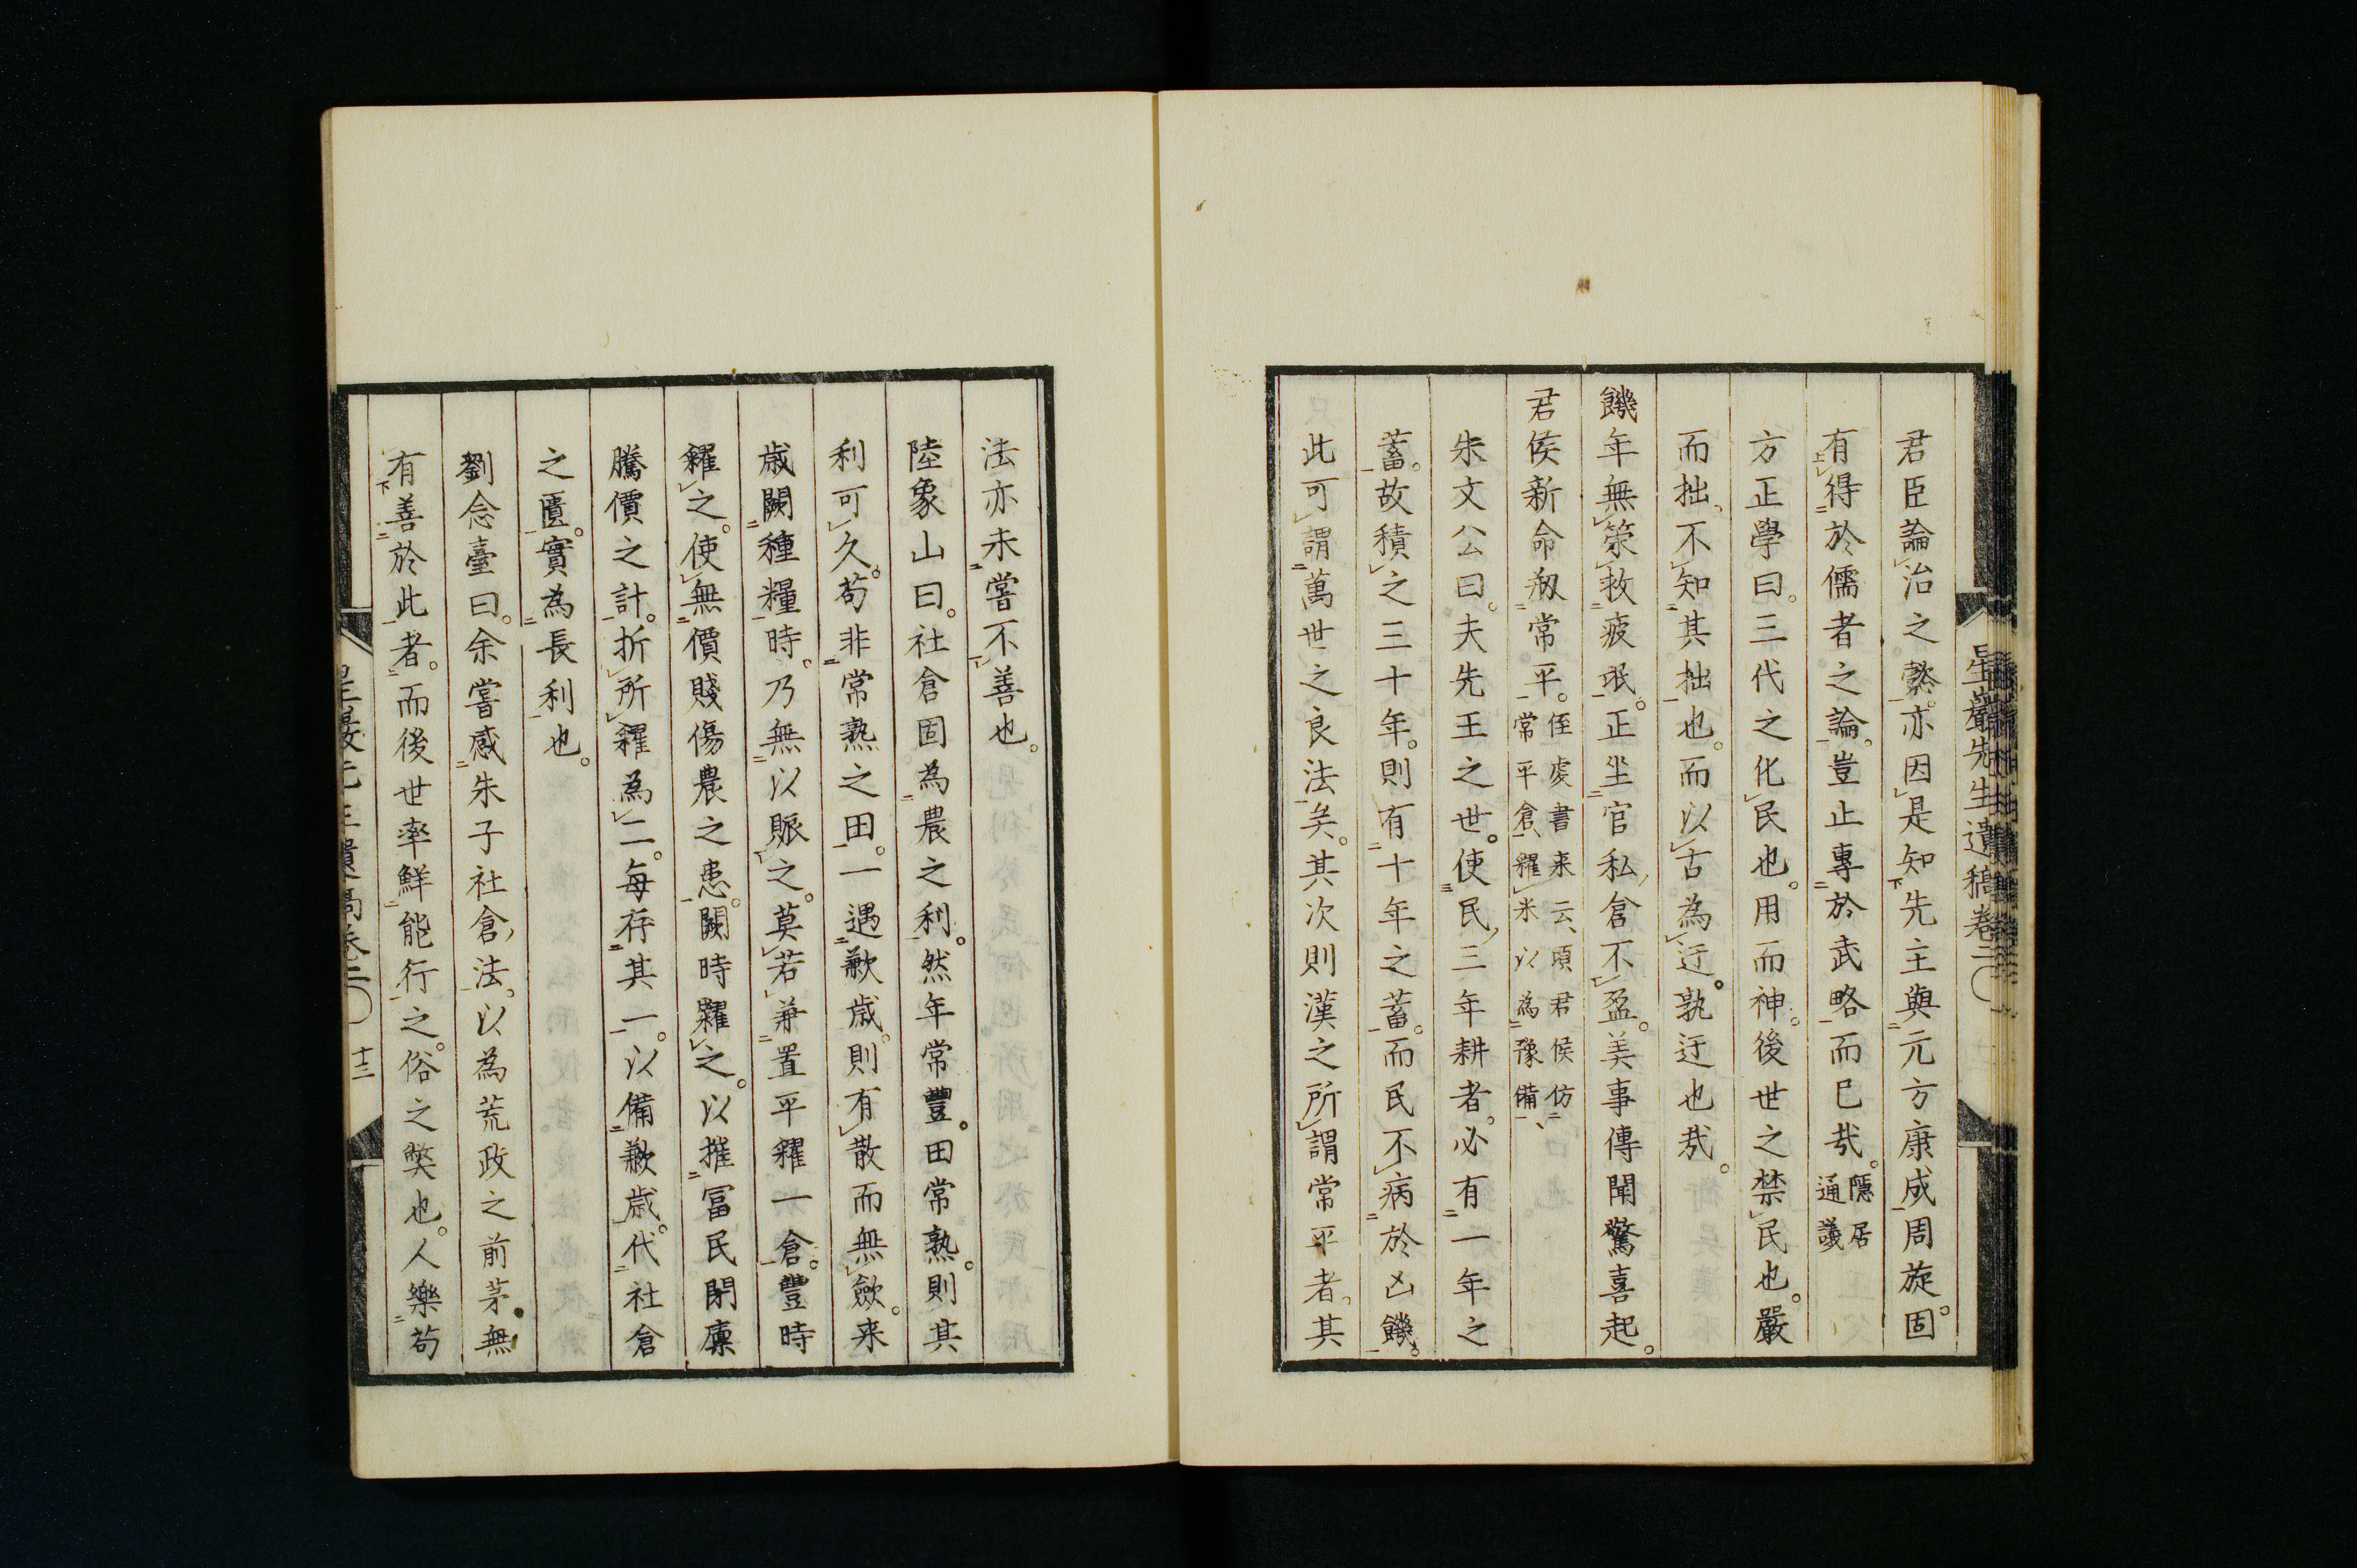 星巖先生遺稿卷二
君臣論治之懿。亦因是知先主與元方康成周旋。固
有得於儒者之論。豈止專於武略而已哉。隱居通議
方正學曰。三代之化民也。用而神。後世之禁民也。嚴
而拙、不知其拙也。而以古為迂。孰迂也哉。
饑年無策救疲氓。正坐官私倉不盈。美事傳聞驚喜起。
君侯新命剏常平。侄處書来云、頃君侯仿常平倉、糴米以為豫備、
朱文公曰。夫先王之世。使民三年耕者。必有一年之
蓄。故積之三十年。則有十年之蓄。而民不病於凶饑。
此可謂萬世之良法矣。其次則漢之所謂常平者、其
法亦未嘗不善也。
陸象山曰。社倉固為農之利。然年常豐。田常熟。則其
利可久。苟非常熟之田。一遇歉歳。則有散而無歛。来
歳闕種糧時。乃無以賑之。莫若兼置平糴一倉。豐時
糴之。使無價賤傷農之患。闕時糶之。以摧冨民閉廩
騰價之計。折所糴為二。每存其一。以備歉歳。代社倉
之匱。實為長利也。
劉念臺曰。余嘗感朱子社倉法。以為荒政之前茅。無
有善於此者。而後世率鮮能行之。俗之獘也。人樂苟
十三